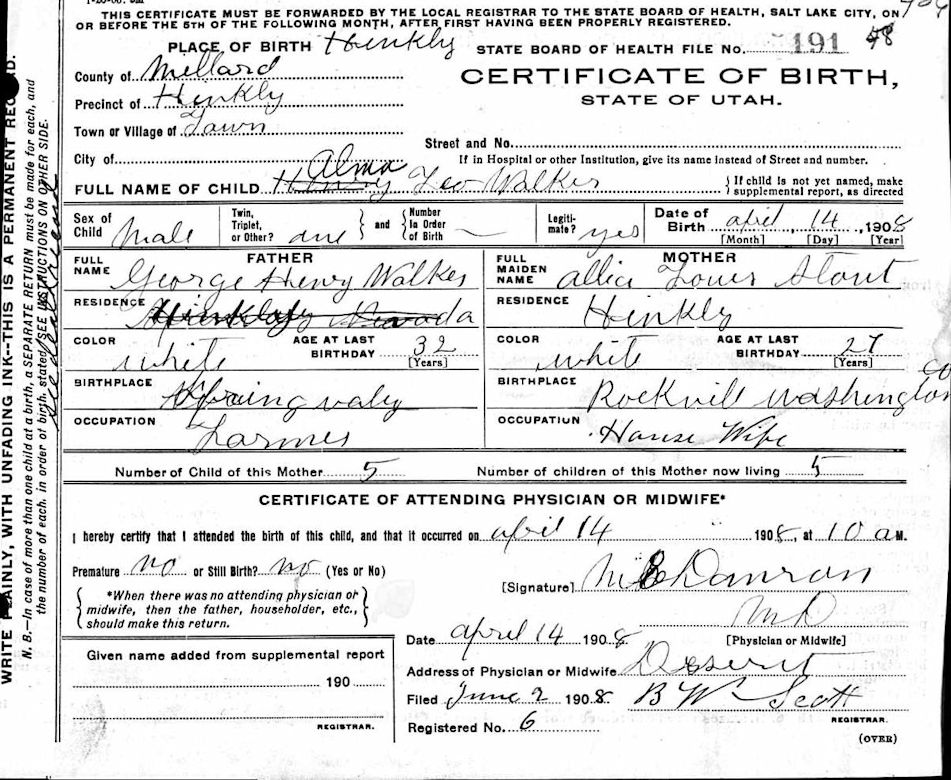 THIS CERTIFICATE MUST BE FORWARDED BY THE LOCAL REGISTRAR TO THE STATE BOARD OF HEALTH, SALT LAKE CITY, ON
OR BEFORE THE 5TH OF THE FOLLOWING MONTH, AFTER FIRST HAVING BEEN PROPERLY REGISTERED.
PLACE OF BIRTH Hinkly STATE BOARD OF HEALTH FILE No. 191 48
County of Millard
CERTIFICATE OF BIRTH,
Precinct of Hinkly
STATE OF UTAH.
Town or Village of Town
Street and No.
City of
If in Hospital or other Institution, give its name instead of Street and number.
Alma
FULL NAME OF CHILD Henry Leo Walker { If child is not yet named, make supplemental report, as directed
Sex of Child Male Twin, Triplet, or Other? one } and { Number in Order of Birth — Legitimate? yes Date of Birth april 14, 1908
[Month] [Day] [Year]
FATHER
FULL NAME George Henry Walker
RESIDENCE Hinkly Nevada
COLOR white AGE AT LAST BIRTHDAY 32 [Years]
BIRTHPLACE Spring valey
OCCUPATION Farmer
MOTHER
FULL MAIDEN NAME Stout
RESIDENCE Hinkly
COLOR white AGE AT LAST BIRTHDAY 27 [Years]
BIRTHPLACE Rockvill Washington co
OCCUPATION House Wife
Number of Child of this Mother 5 Number of children of this Mother now living 5
CERTIFICATE OF ATTENDING PHYSICIAN OR MIDWIFE*
I hereby certify that I attended the birth of this child, and that it occurred on april 14 1908, at 10 a M.
Premature no or Still Birth? no (Yes or No)
[Signature] Damron
MD
[Physician or Midwife]
{ *When there was no attending physician or midwife, then the father, householder, etc., should make this return. }
Date april 14 1908
Given name added from supplemental report
Address of Physician or Midwife Desert
190
Filed June 2 1908 B W Scott
REGISTRAR.
REGISTRAR.
Registered No. 6
(OVER)
WRITE PLAINLY, WITH UNFADING INK--THIS IS A PERMANENT RECORD.
N. B.—In case of more than one child at a birth, a SEPARATE RETURN must be made for each, and
the number of each, in order of birth, stated (SEE INSTRUCTIONS ON OTHER SIDE.